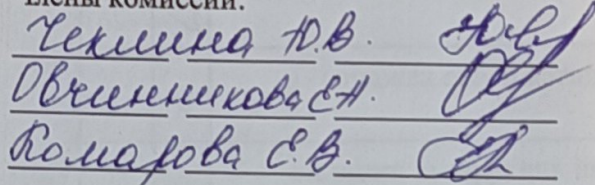 Члены комиссии:
Чеклина Ю.В.
Овчинникова Е.Н.
Комарова Е.В.